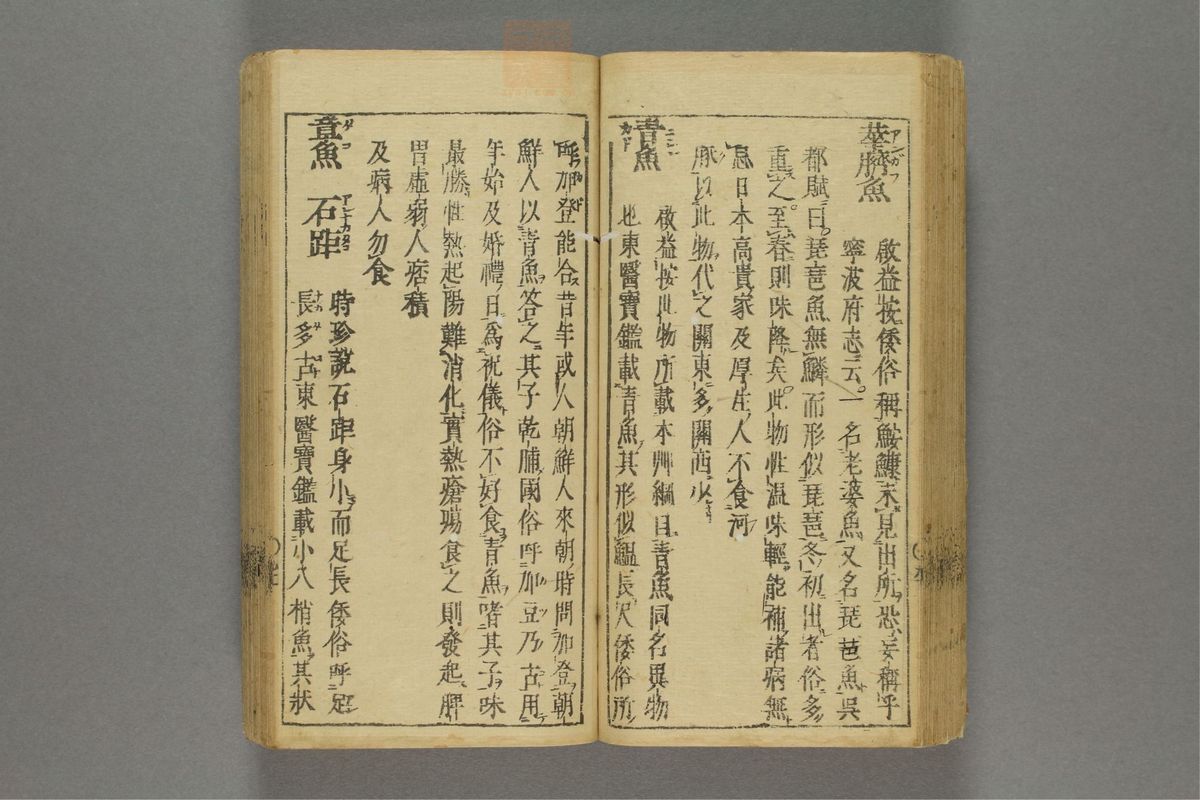 華臍魚
啟益按倭俗稱鮟鱇未見出所恐妄稱乎
寧波府志云一名老婆魚又名琵芭魚吳
都賦曰琵琶魚無鱗而形似琵琶冬初出者俗多
重之至春則味降矣此物性溫味輕能補諸病無
忌日本高貴家及厚生人不食河
豚以此物代之關東多關西少
青魚
啟益按此物所載本艸綱目青魚同名異物
也東醫寶鑑載青魚其形似鰮長尺倭俗所
呼加登能合昔年或人朝鮮人來朝時問加登朝
鮮人以青魚答之其子乾脯國俗呼加豆乃古用
年始及婚禮日為祝儀俗不好食青魚嗜其子味
最勝性熱起陽難消化實熱瘡瘍食之則發起脾
胃虛弱人痞積
及病人勿食
章魚 石距
時珍說石距身小而足長倭俗呼足
長多古東醫寶鑑載小八梢魚其狀